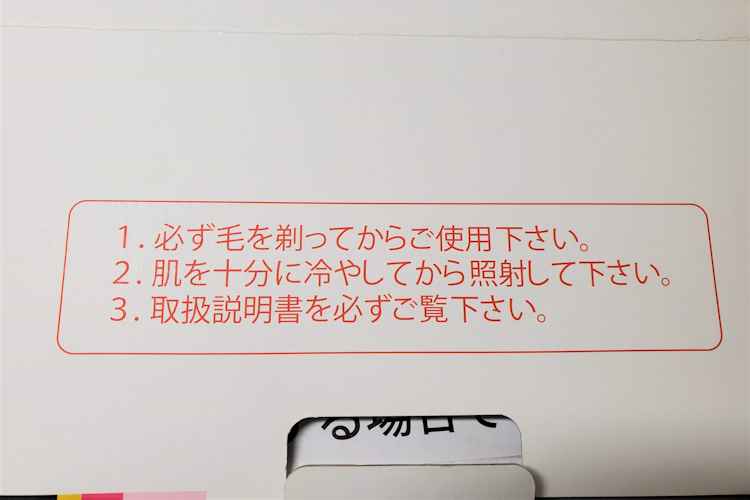 1. 必ず毛を剃ってからご使用下さい。
2. 肌を十分に冷やしてから照射して下さい。
3. 取扱説明書を必ずご覧下さい。
る場合で